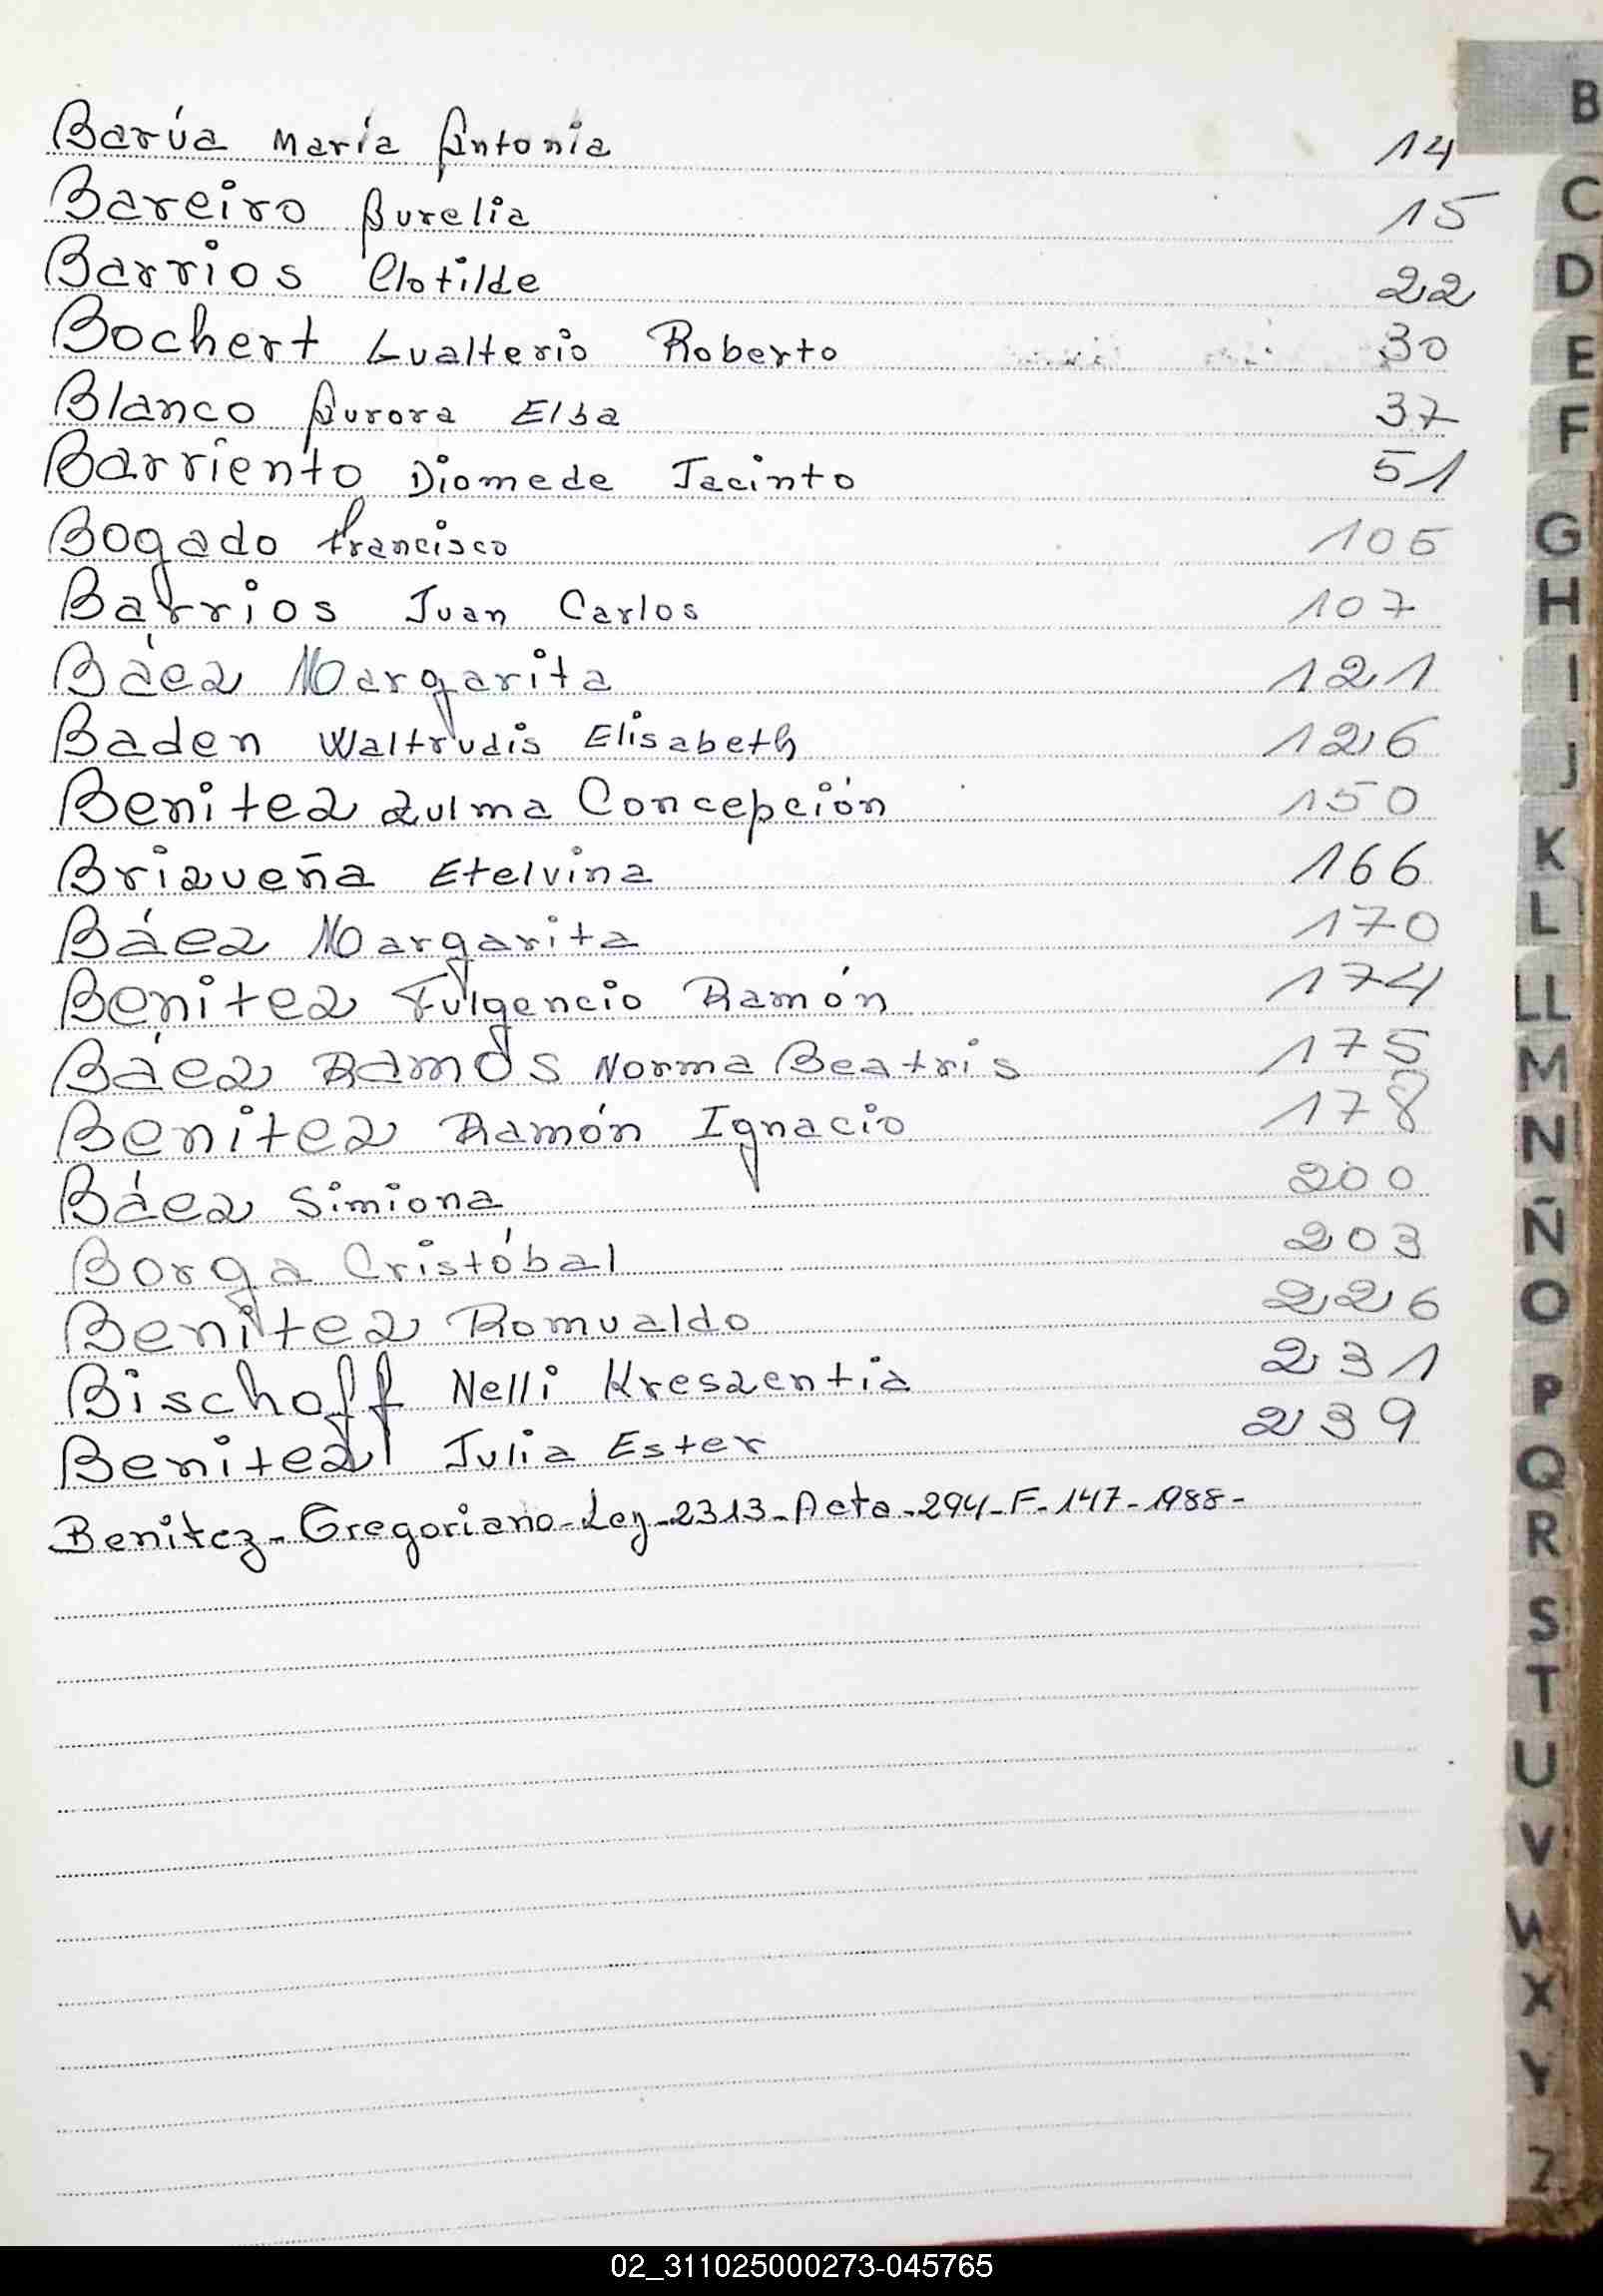 Barúa María Antonia 14
Bareiro Aurelia 15
Barrios Clotilde 22
Bochert Gualterio Roberto 30
Blanco Aurora Elba 37
Barriento Diomede Jacinto 51
Bogado Francisco 105
Barrios Juan Carlos 107
Báez Margarita 121
Baden Waltrudis Elisabeth 126
Benitez Zulma Concepción 150
Brizueña Etelvina 166
Báez Margarita 170
Benitez Fulgencio Ramón 174
Báez Ramos Norma Beatris 175
Benitez Ramón Ignacio 178
Báez Simiona 200
Borga Cristóbal 203
Benitez Romualdo 226
Bischoff Nelli Kreszentia 231
Benitez Julia Ester 239
Benitez-Gregoriano-Ley-2313-Acta-294-F-147-1988-
B
C
D
E
F
G
H
I
J
K
L
LL
M
N
Ñ
O
P
Q
R
S
T
U
V
W
X
Y
Z
02_311025000273-045765